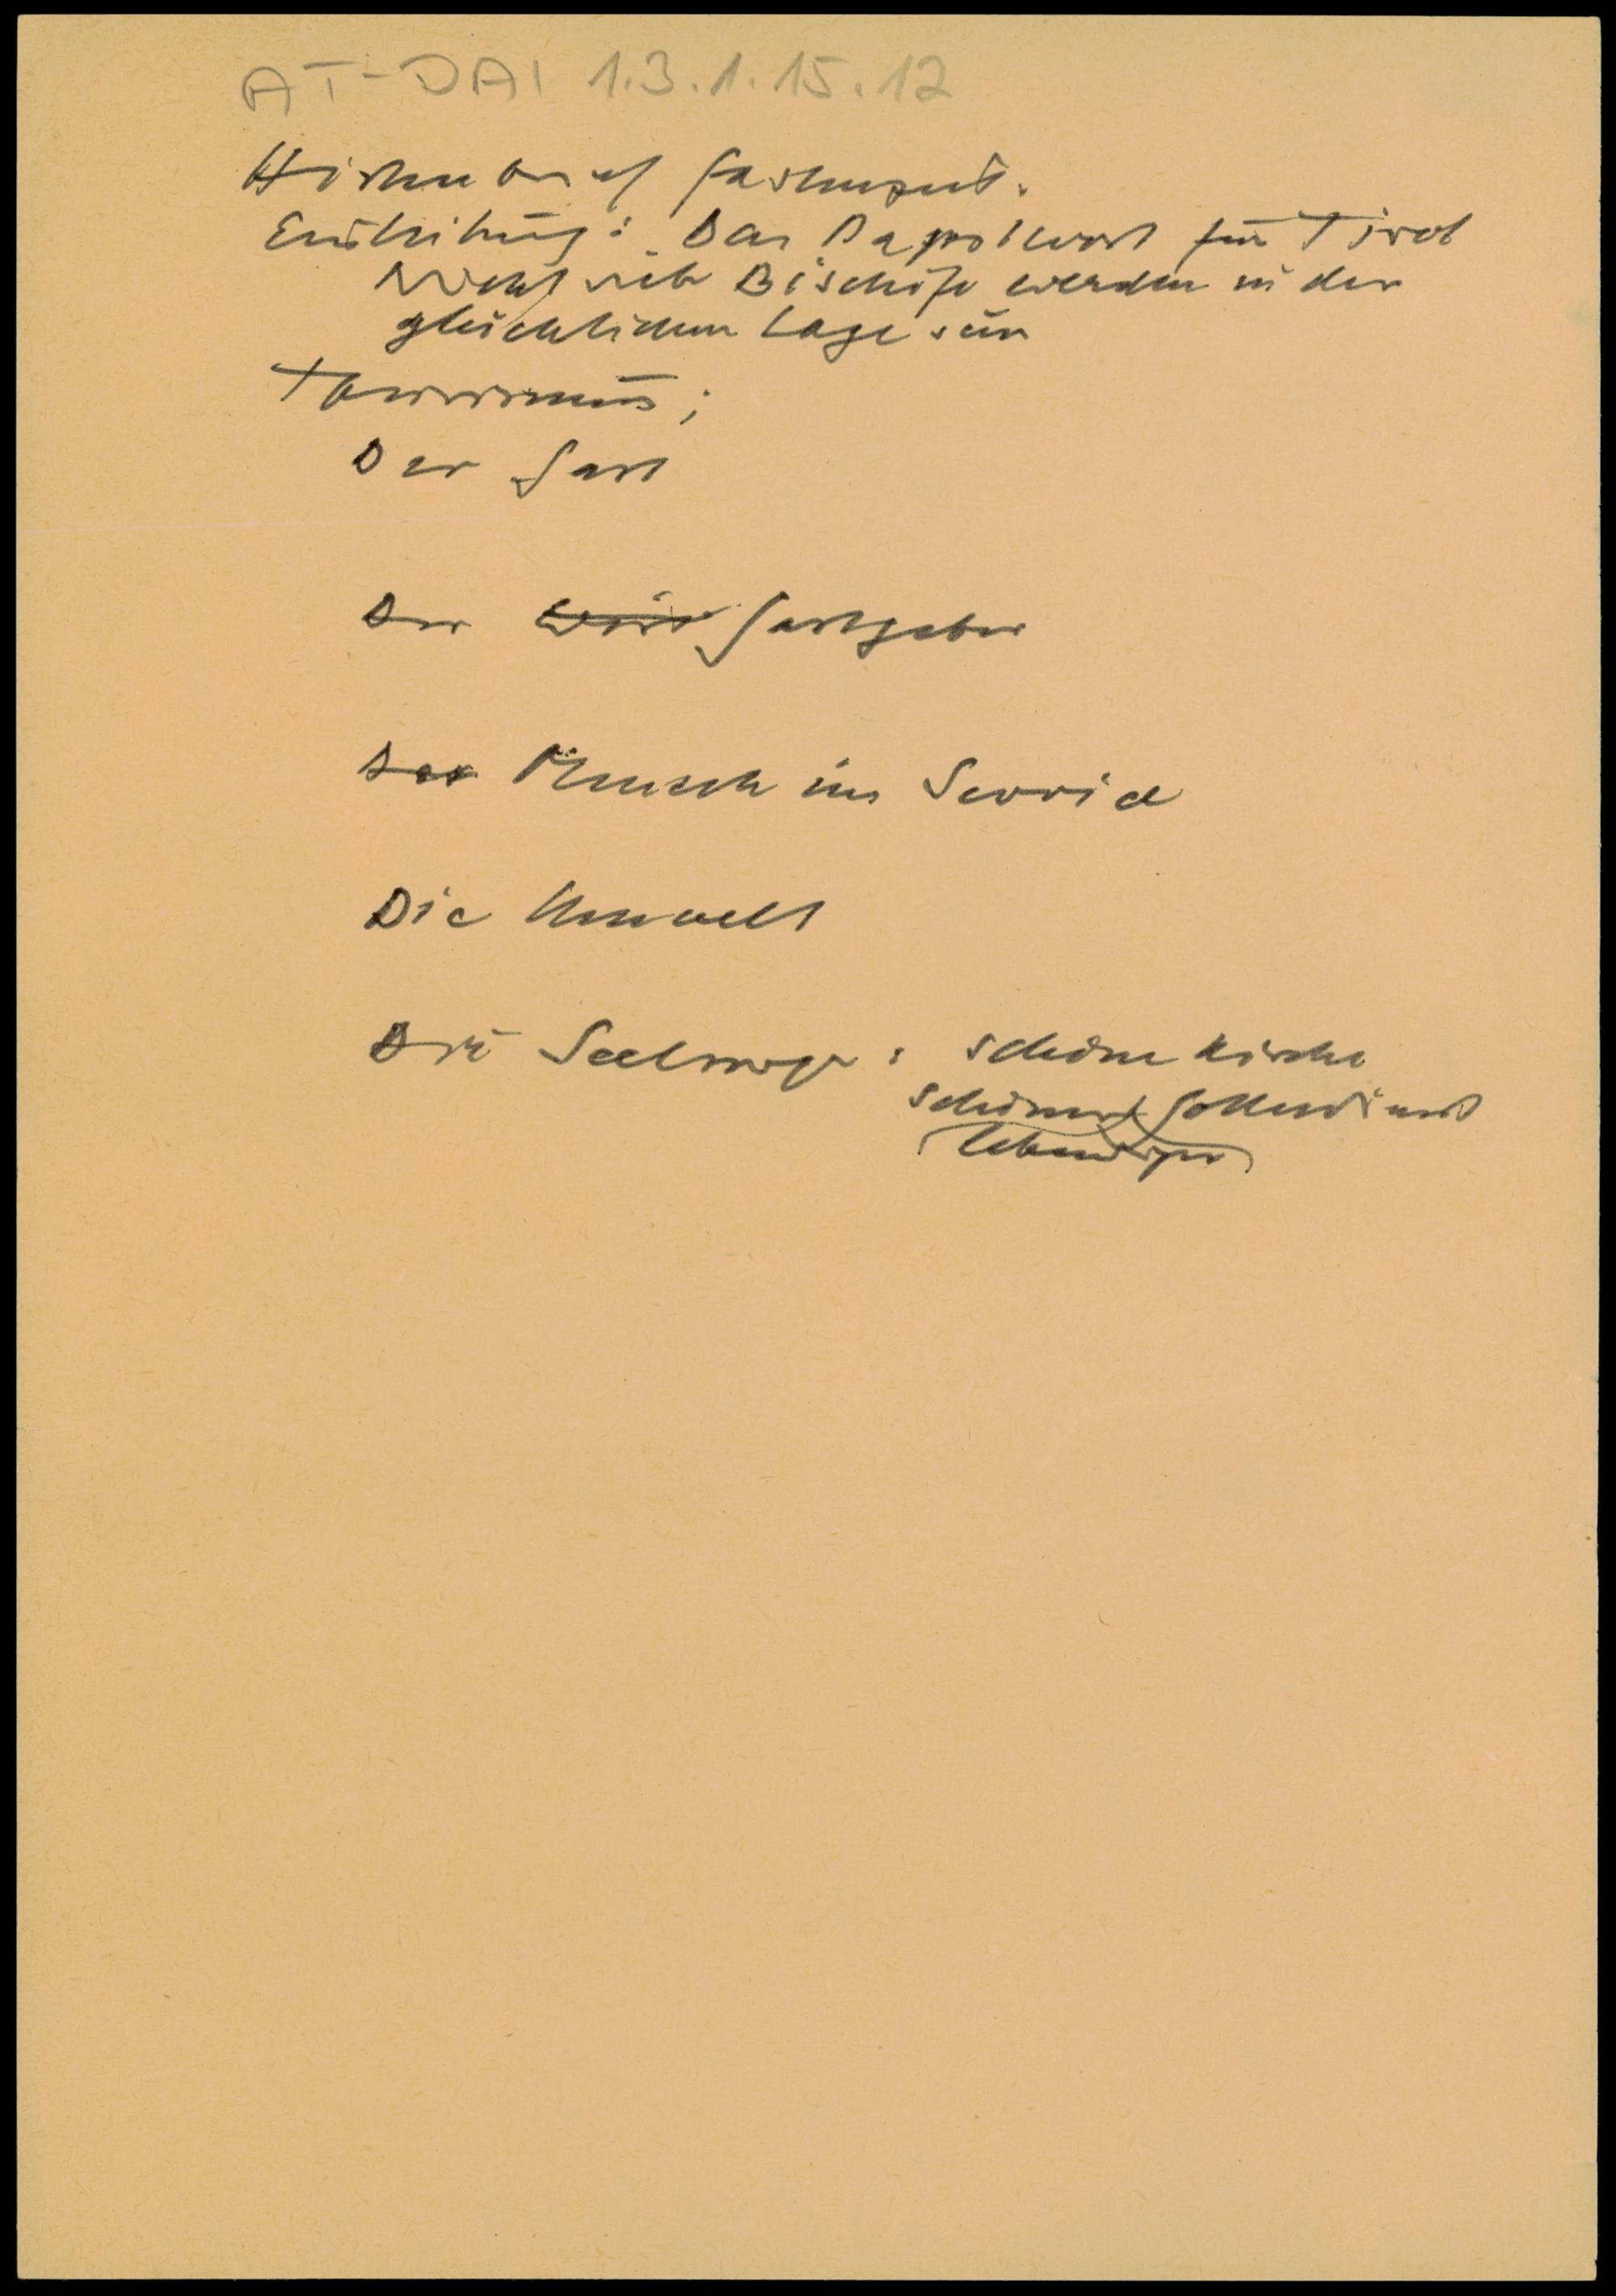 AT-DAI 1.3.1.15.12
Hirtenbrief Fastenzeit.
Einleitung: Das Papstwort für Tirol
Nicht viele Bischöfe werden in der
glücklichen Lage sein
Tourismus;
Der Gast
Der Wirt Gastgeber
Der Mensch im Service
Die Umwelt
Die Seelsorge: schöne Kirche
schöner Gottesdienst
lebendiger